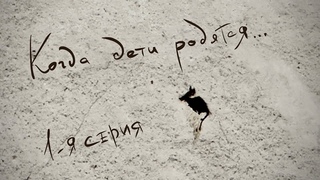 Когда дети родятся...
1-я серия